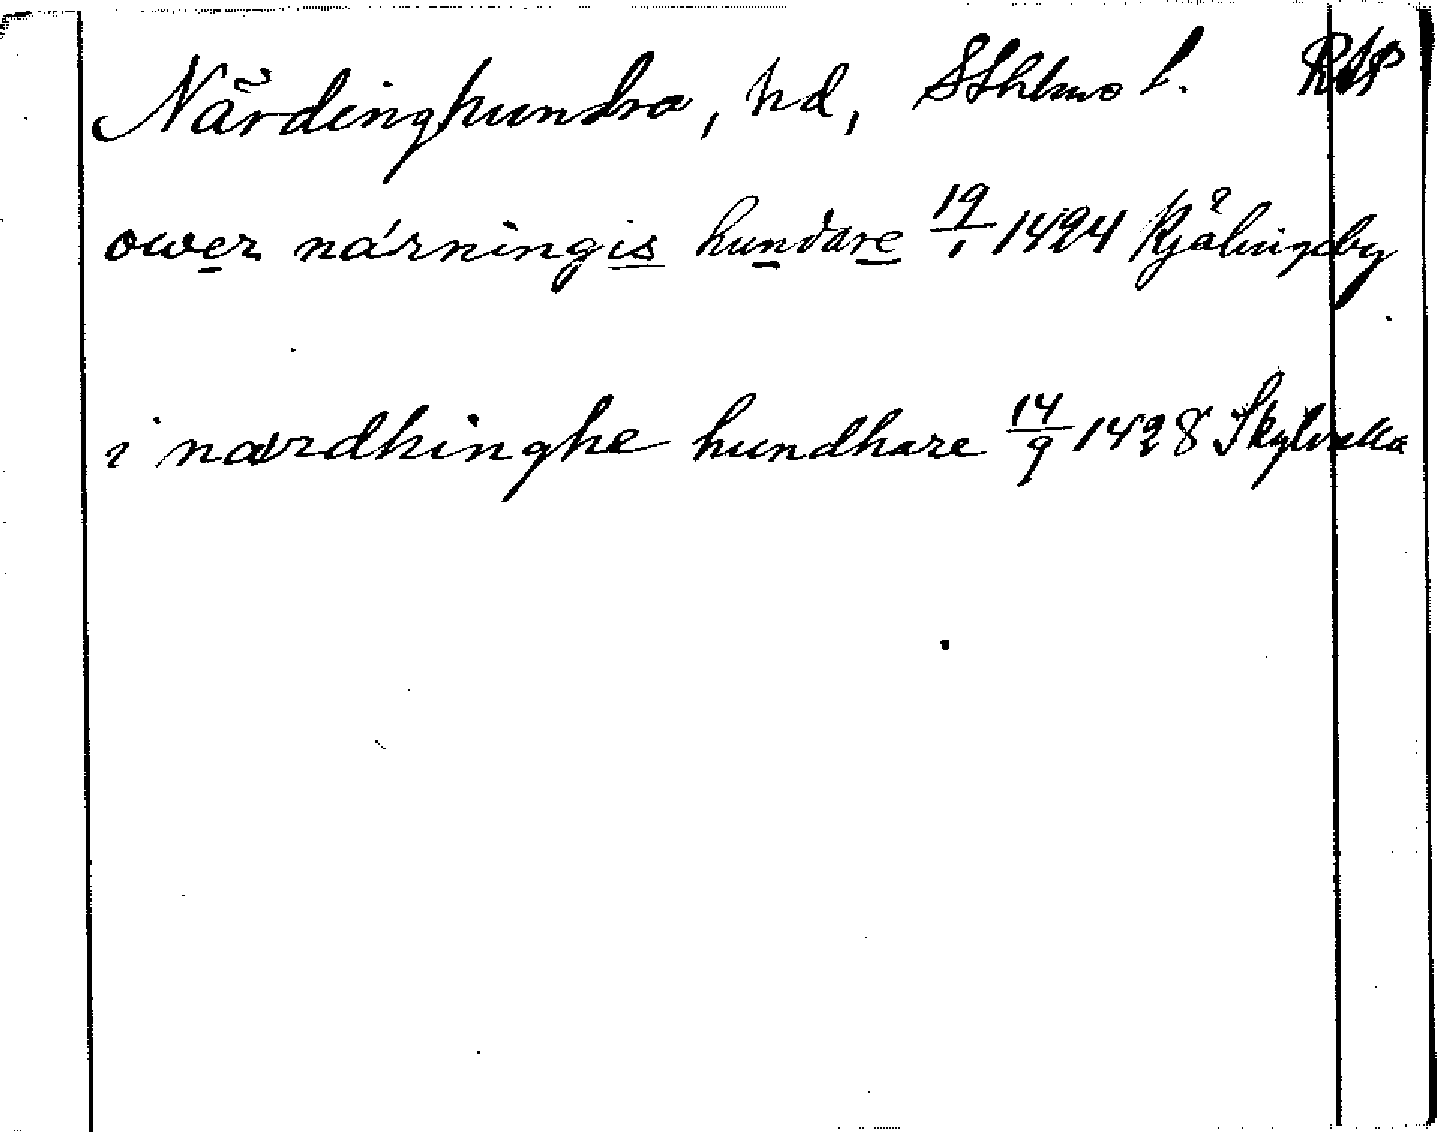 Närdinghundra, hd, Sthlms l. RAP
ower närningis hundare 19/1 1424 Kjålingeby
i nærdhinghe hundhare 14/9 1428 Skylvalla